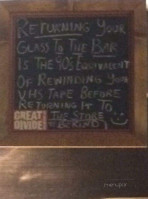 RETURNING YOUR
GLASS TO THE BAR
IS THE 90'S EQUIVALENT
OF REWINDING YOUR
VHS TAPE BEFORE
RETURNING IT TO
THE STORE
GREAT
DIVIDE